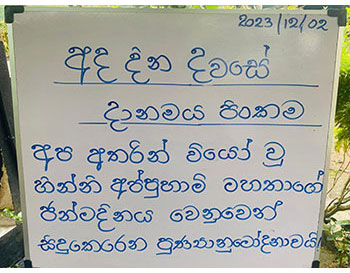 2023/12/02
අද දින දවසේ
දානමය පිංකම
අප අතරින් වියෝ වූ
හන්නි අප්පුහාමි මහතාගේ
ජන්මදිනය වෙනුවෙන්
සිදුකෙරෙන පුණ්‍යානුමෝදනාවයි!